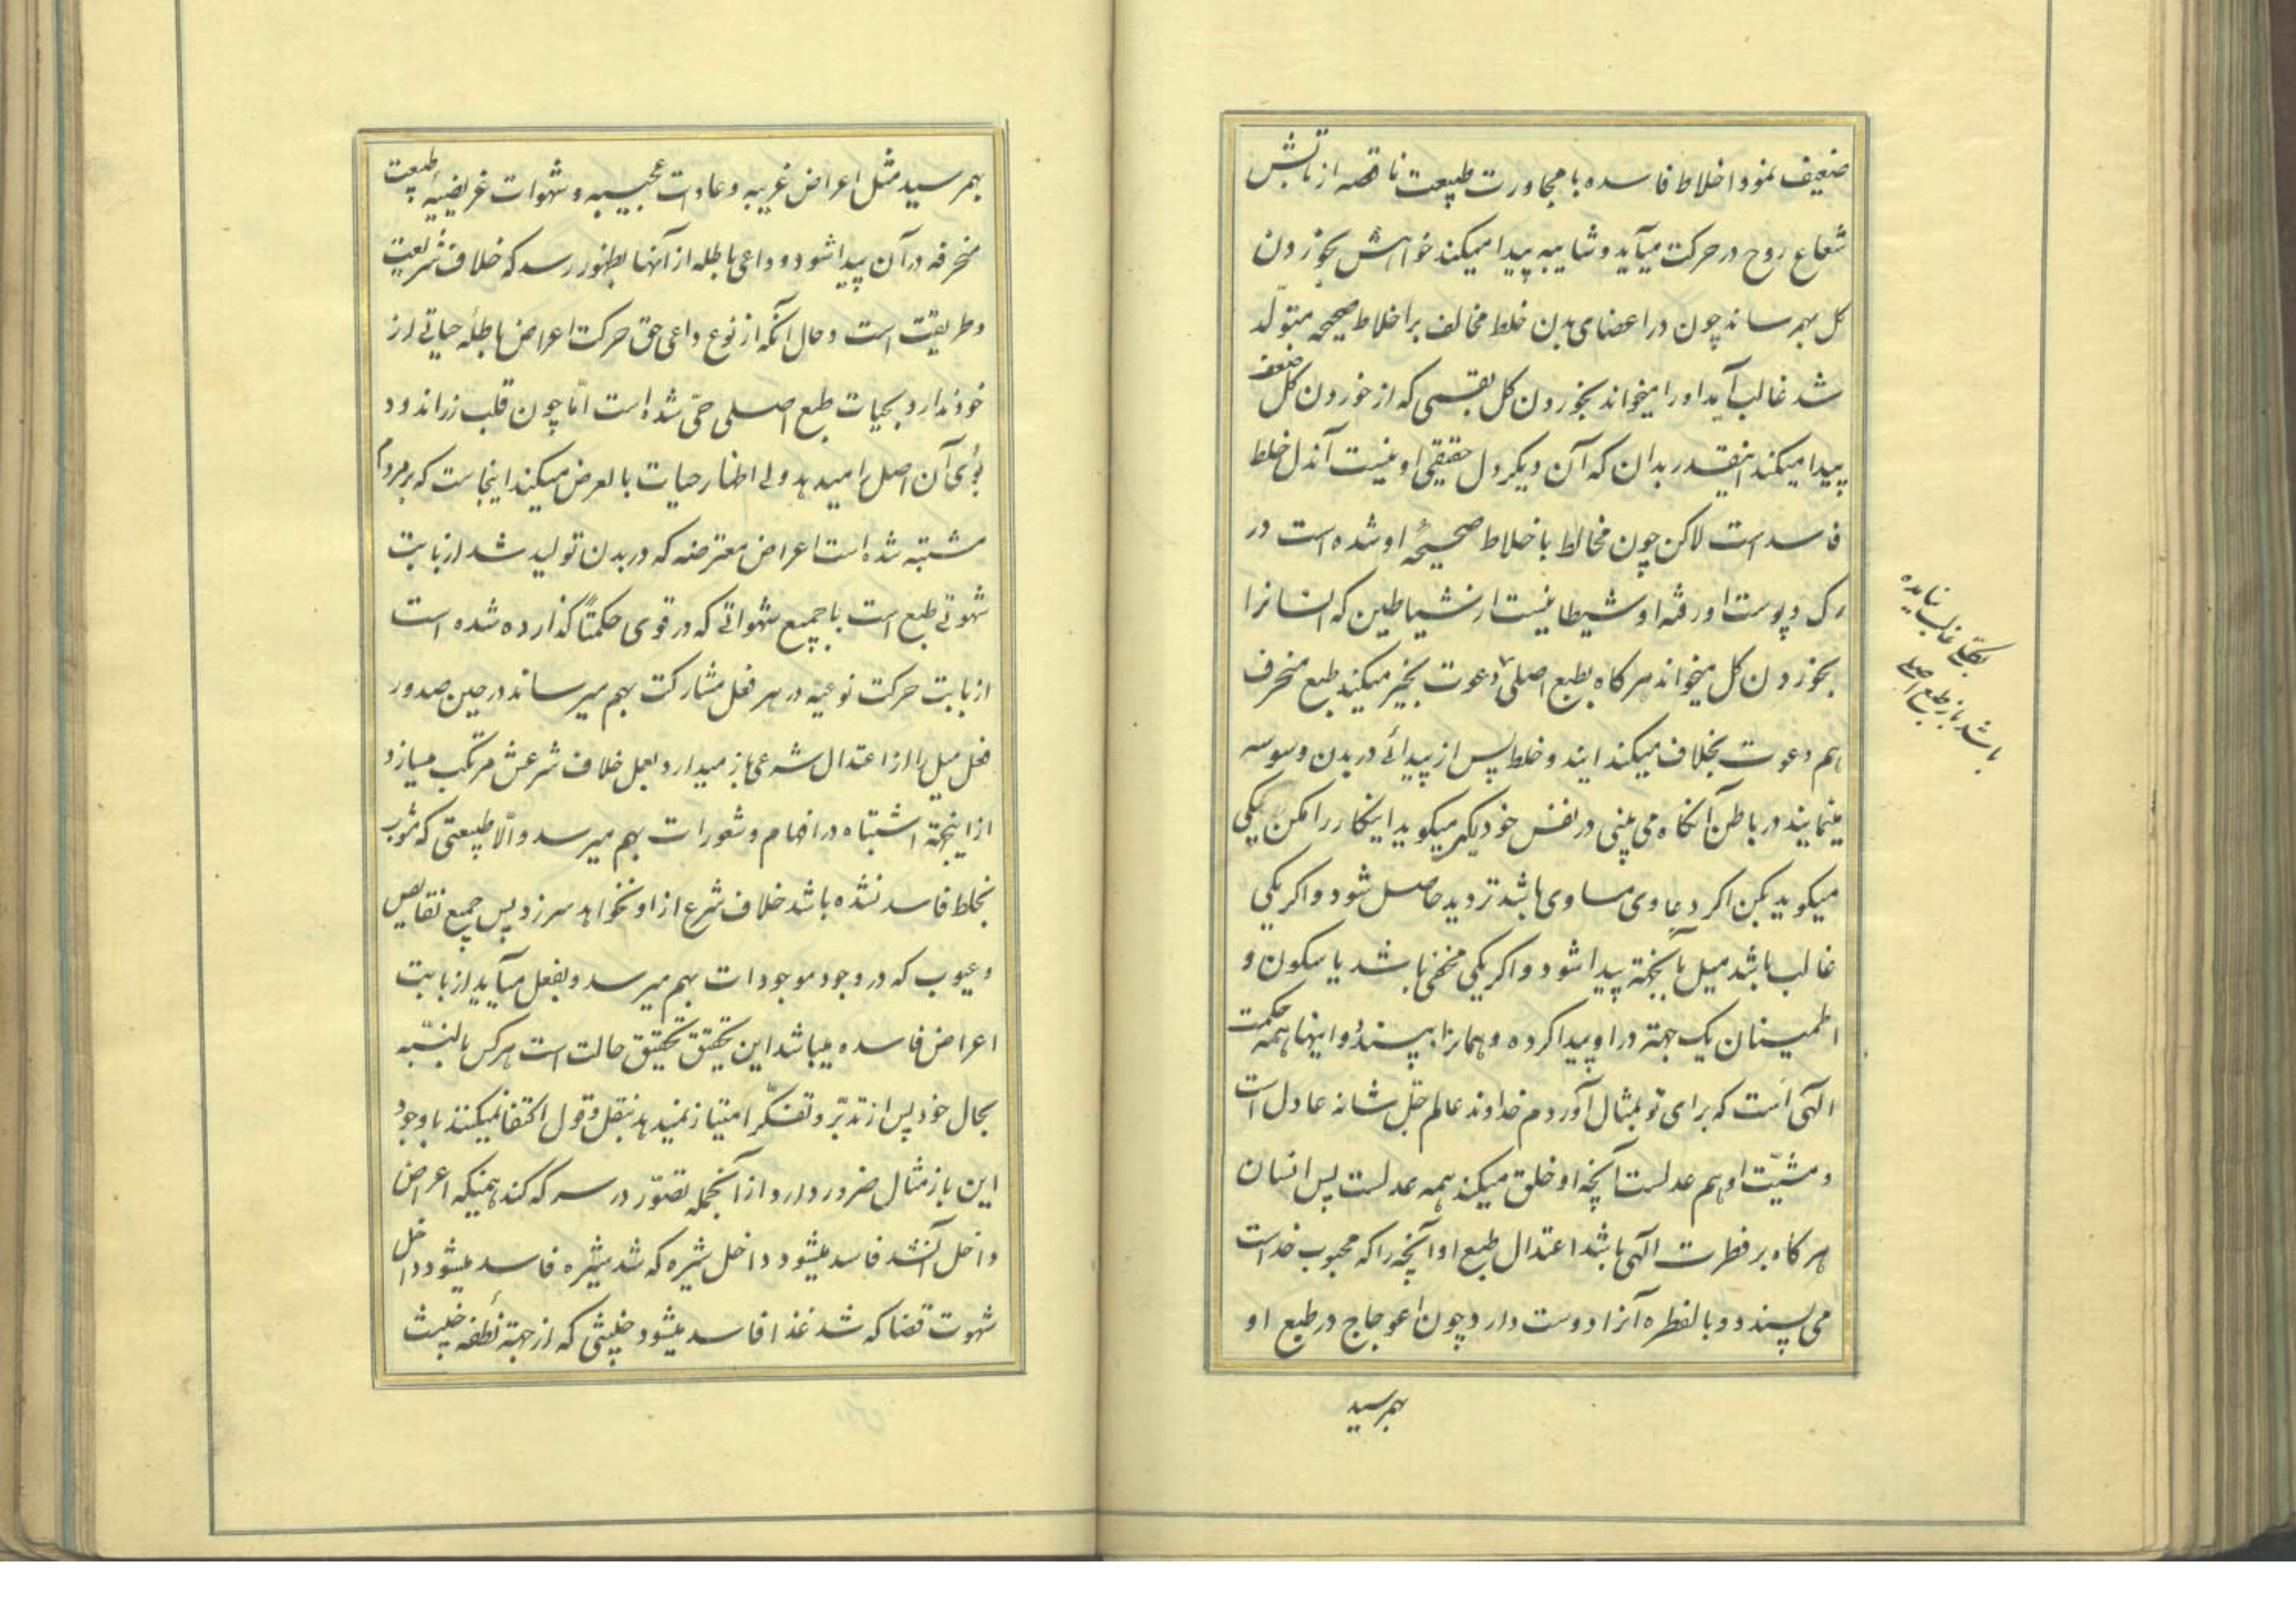 ضعیف نمود اخلاط فاسده با مجاورت طبیعت ناقصه از تابش
شعاع روح در حرکت میآید و شایبه پیدا میکند خواهش بخوردن
کل بهمرساند چون در اعضای بدن خلط مخالف بر اخلاط صحیحه متولّد
شد غالب آید او را میخواند بخوردن کل بقسمی که از خوردن کل ضعف
پیدا میکند اینقدر بدان که آن دیکر دل حقیقی او نیست آندل خلط
فاسد است لاکن چون مخالط باخلاط صحیحهٔ او شده است در
رک و پوست او رفته او شیطانیست از شیاطین که انسانرا
بخوردن کل میخواند هرکاه بطبع اصلی دعوت بخیر میکند طبع منحرف
هم دعوت بخلاف میکند ایندو خلط پس از پیدائی در بدن وسوسه
مینمایند در باطن آنکاه می بینی در نفس خود یکی میکوید اینکار را مکن یکی
میکوید بکن اکر دعاوی مساوی باشد تردید حاصل شود و اکر یکی
غالب باشد میل بآنجهة پیدا شود و اکر یکی مخفی باشد یا سکون و
اطمینان یک جهة در او پیدا کرده و همانرا بپسندد و اینها همه حکمت
الهی است که برای تو بمثال آوردم خداوند عالم جلّ شانه عادل است
و مشیّت او هم عدلست آنچه او خلق میکند همه عدلست پس انسان
هرکاه بر فطرت الهی باشد اعتدال طبع او آنچه را که محبوب خداست
می پسندد و بالفطره آنرا دوست دارد چون اعوجاج در طبع او
بهمرسید
بکلی غالب نیامده
باشد باز طبع اصلی
بهمرسید مثل اعراض غریبه و عادات عجیبه و شهوات غریضیه طبیعت
منحرفه در آن پیدا شود و دواعی باطله از آنها بظهور رسد که خلاف شریعت
و طریقت است و حال آنکه از نوع داعی حق حرکت اعراض باطله حیاتی از
خود ندارد بحیات طبع اصلی حیّ شده است امّا چون قلب زراندود
بوی آن اصل را میدهد ولی اظهار حیات بالعرض میکند اینجاست که بر مردم
مشتبه شده است اعراض معترضه که در بدن تولید شد از بابت
شهوتی طبع است با جمیع شهواتی که در قوی حکمتاً کذارده شده است
از بابت حرکت نوعیه در هر فعل مشارکت بهم میرساند در حین صدور
فعل میل را از اعتدال شرعی باز میدارد بعمل خلاف شرعش مرتکب میسازد
از اینجهة اشتباه در افهام و شعورات بهم میرسد و الّا طبیعتی که مشوب
بخلط فاسد نشده باشد خلاف شرع از او نخواهد سر زد پس جمیع نقایص
و عیوب که در وجود موجودات بهم میرسد و بفعل میآید از بابت
اعراض فاسده میباشد این تحقیق تحقیق حالت است هرکس بالنسّبه
بحال خود پس از تدبّر و تفکّر امتیاز نمیدهد بنقل و قول اکتفا نمیکنند باوجود
این باز مثال ضرور دارد از آنجمله تصوّر در سرکه کند همینکه اعراض
داخل آن شد فاسد میشود داخل شیره که شد شیره فاسد میشود داخل
شهوت قضا که شد غذا فاسد میشود خبیثی که از جهة نطفه خبیث